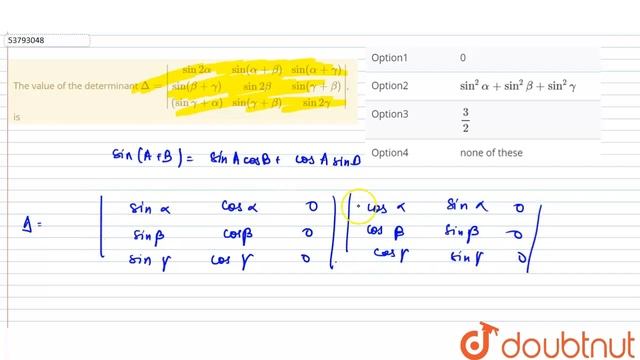 53793048
The value of the determinant Δ = | sin 2α sin(α + β) sin(α + γ) |
| sin(β + γ) sin 2β sin(γ + β) | .
| (sin γ + α) sin(γ + β) sin 2γ |
is
Option1 0
Option2 sin² α + sin² β + sin² γ
Option3 3/2
Option4 none of these
sin(A+B) = sin A cos B + cos A sin B
Δ = | sin α cos α 0 | | cos α sin α 0 |
| sin β cos β 0 | | cos β sin β 0 |
| sin γ cos γ 0 | | cos γ sin γ 0 |
doubtnut